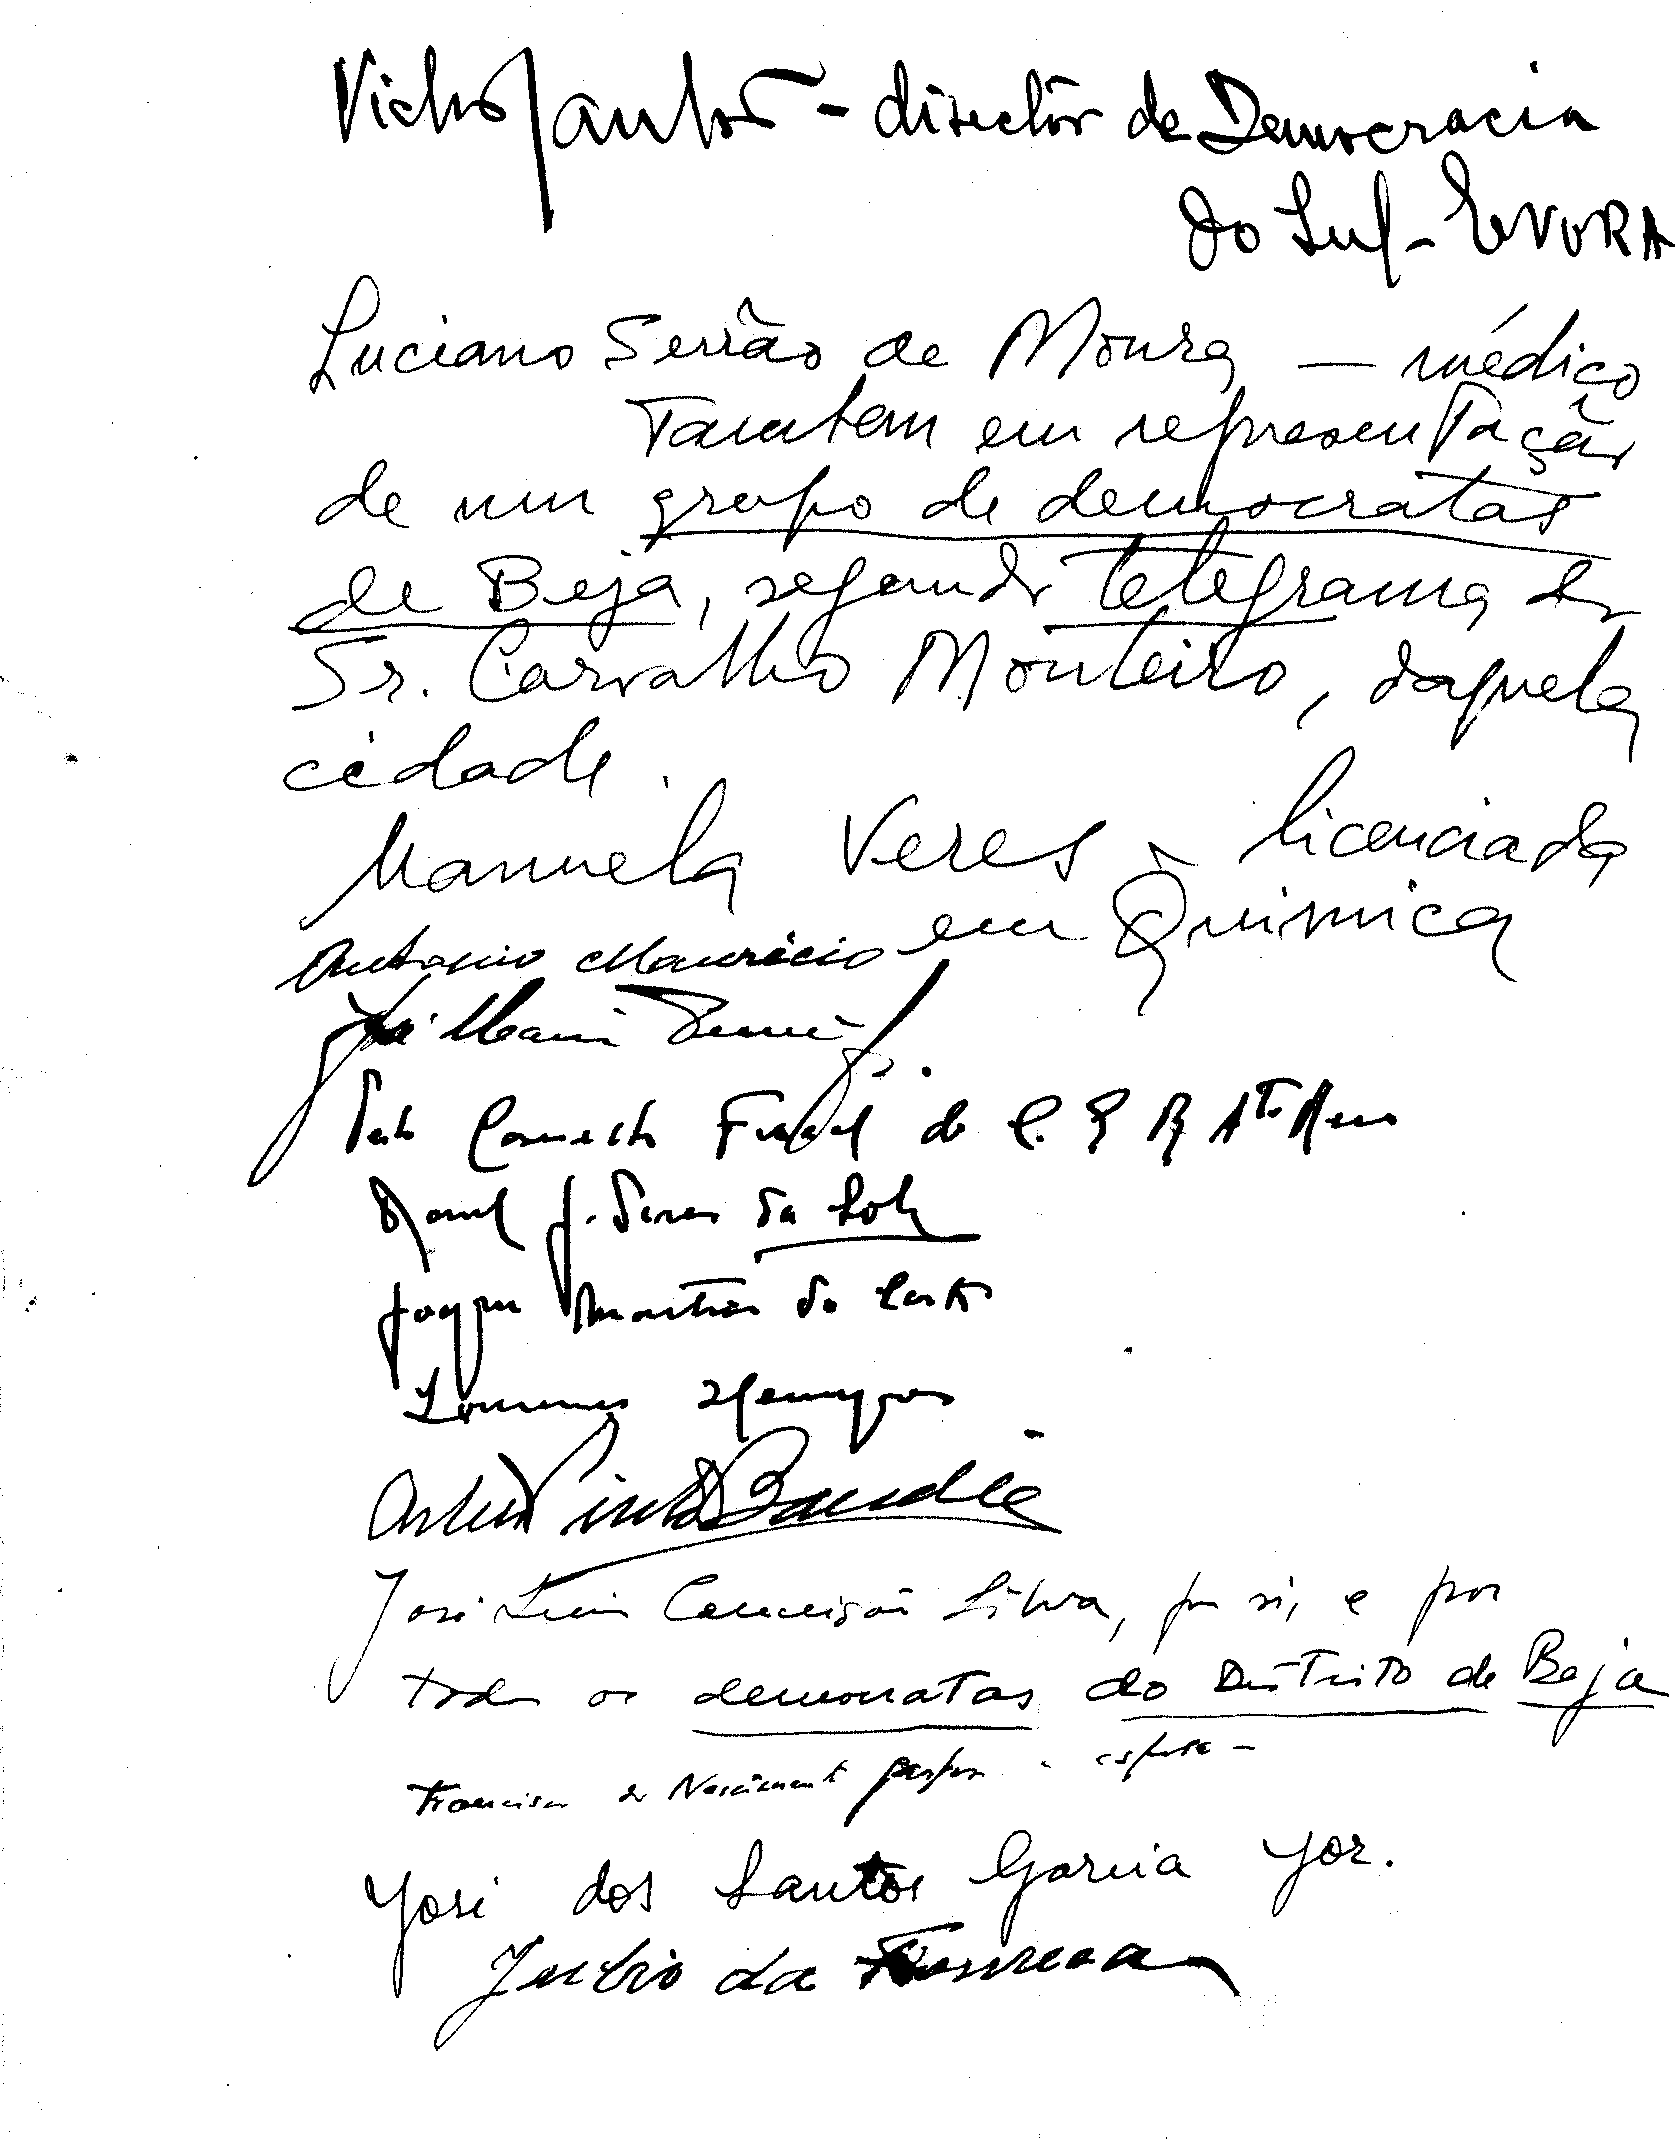 Victor Santos - director de Democracia
do Sul - EVORA
Luciano Serrão de Moura — médico
Também em representação
de um grupo de democratas
de Beja, segundo telegrama do
Sr. Carvalho Monteiro, daquela
cidade.
Manuela Veres - licenciada
em Química
Antonio Mauricio
José Maria
do C. P R
Manuel J. da
Joaqm Martins da Costa
Lourenço
Artur Pinto
José Luis Conceição Silva, por si, e por
todos os democratas do Distrito de Beja
Francisco do Nascimento esposa -
José dos Santos Garcia Jor.
Julio da Fonseca